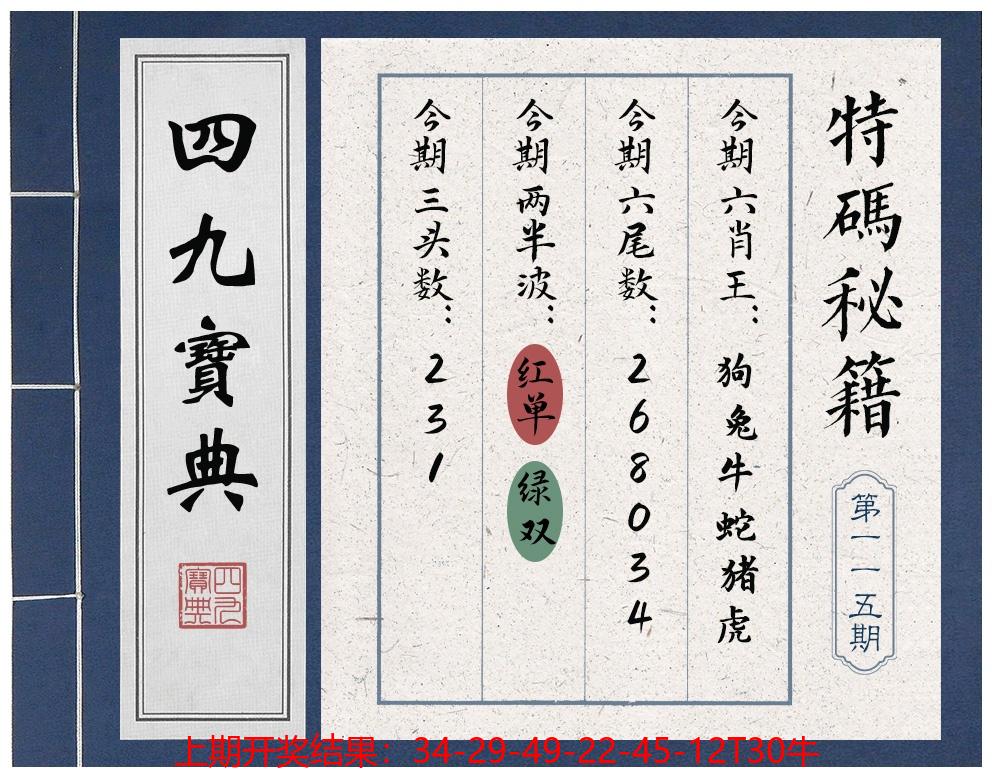 特碼秘籍
第一一五期
今期六肖王：狗兔牛蛇猪虎
今期六尾数：268034
今期两半波：红单 绿双
今期三头数：231
四九寶典
四九寶典
上期开奖结果：34-29-49-22-45-12T30牛